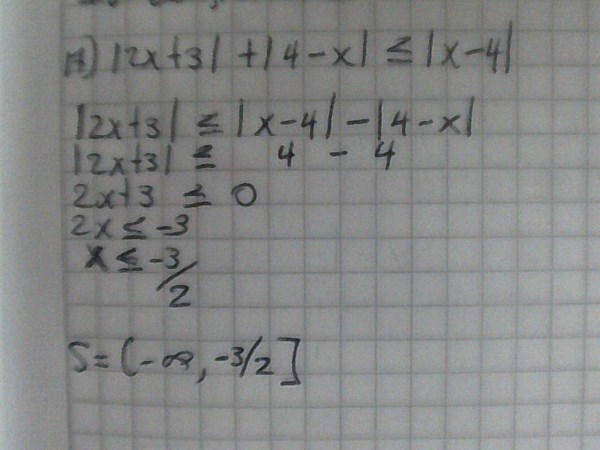 18) |2x+3| + |4-x| ≤ |x-4|
|2x+3| ≤ |x-4| - |4-x|
|2x+3| ≤ 4 - 4
2x+3 ≤ 0
2x ≤ -3
x ≤ -3/2
S = (-∞, -3/2]